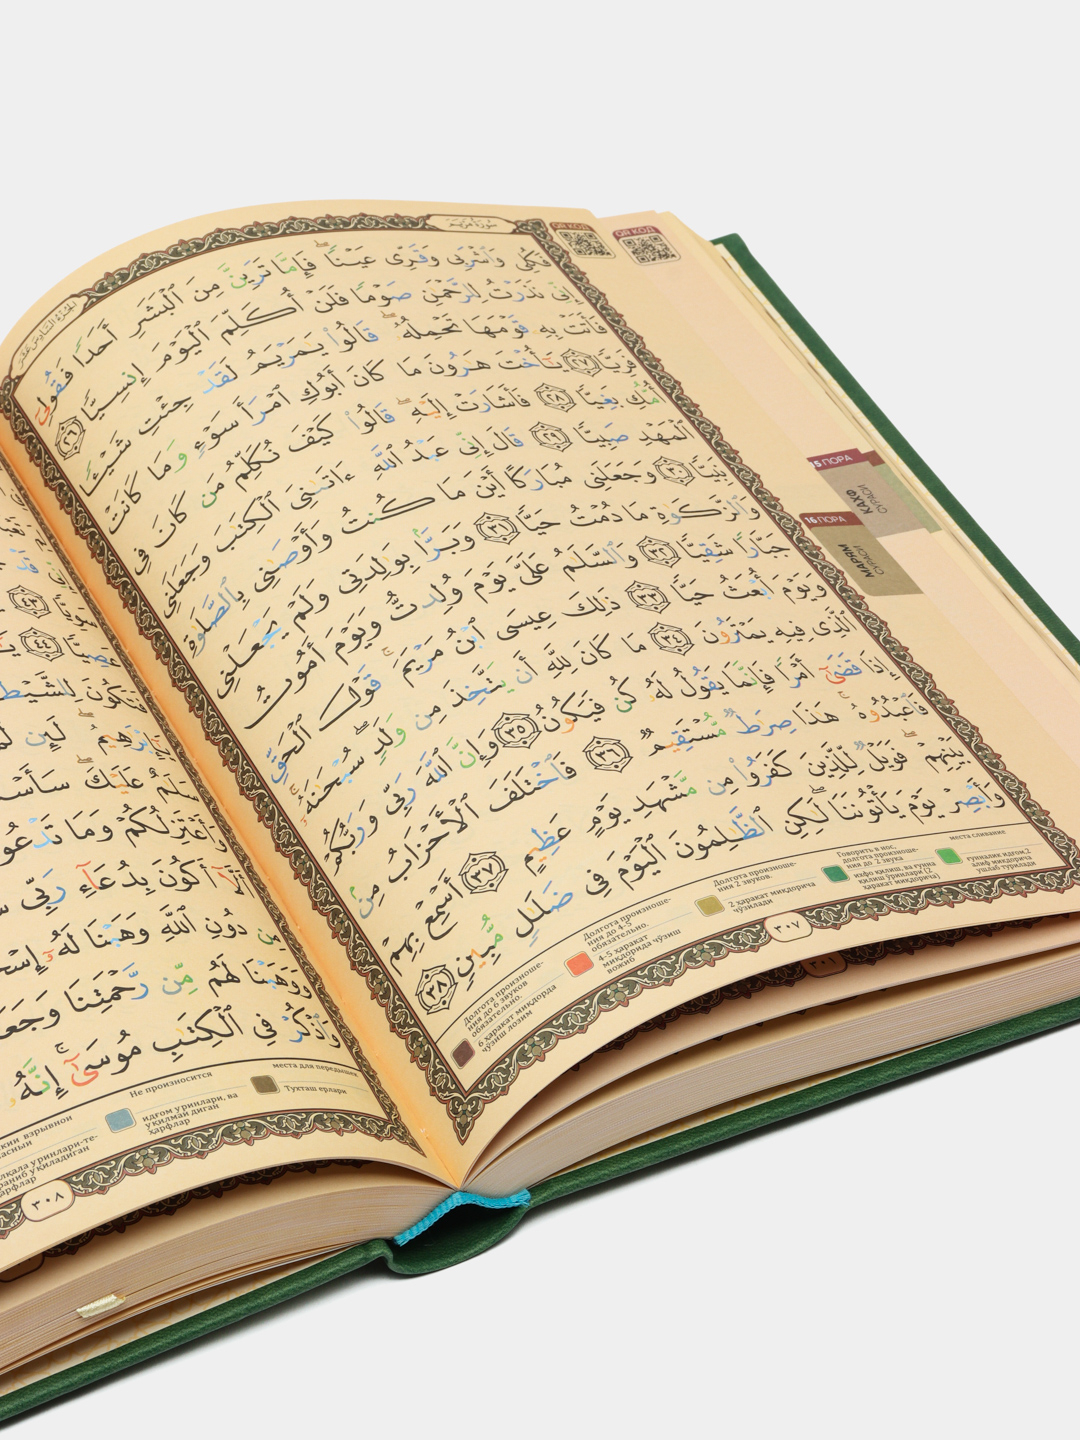 سورة مريم
الجزء السادس عشر
QR КОД
QR КОД
فَكُلِى وَٱشْرَبِى وَقَرِّى عَيْنًا ۖ فَإِمَّا تَرَيِنَّ مِنَ ٱلْبَشَرِ أَحَدًا فَقُولِىٓ
إِنِّى نَذَرْتُ لِلرَّحْمَٰنِ صَوْمًا فَلَنْ أُكَلِّمَ ٱلْيَوْمَ إِنسِيًّا ٢٦
فَأَتَتْ بِهِۦ قَوْمَهَا تَحْمِلُهُۥ ۖ قَالُوا۟ يَٰمَرْيَمُ لَقَدْ جِئْتِ شَيْـًٔا
فَرِيًّا ٢٧ يَٰٓأُخْتَ هَٰرُونَ مَا كَانَ أَبُوكِ ٱمْرَأَ سَوْءٍ وَمَا كَانَتْ
أُمُّكِ بَغِيًّا ٢٨ فَأَشَارَتْ إِلَيْهِ ۖ قَالُوا۟ كَيْفَ نُكَلِّمُ مَن كَانَ فِى
ٱلْمَهْدِ صَبِيًّا ٢٩ قَالَ إِنِّى عَبْدُ ٱللَّهِ ءَاتَىٰنِىَ ٱلْكِتَٰبَ وَجَعَلَنِى
نَبِيًّا ٣٠ وَجَعَلَنِى مُبَارَكًا أَيْنَ مَا كُنتُ وَأَوْصَٰنِى بِٱلصَّلَوٰةِ
وَٱلزَّكَوٰةِ مَا دُمْتُ حَيًّا ٣١ وَبَرًّۢا بِوَٰلِدَتِى وَلَمْ يَجْعَلْنِى
جَبَّارًا شَقِيًّا ٣٢ وَٱلسَّلَٰمُ عَلَىَّ يَوْمَ وُلِدتُّ وَيَوْمَ أَمُوتُ
وَيَوْمَ أُبْعَثُ حَيًّا ٣٣ ذَٰلِكَ عِيسَى ٱبْنُ مَرْيَمَ ۚ قَوْلَ ٱلْحَقِّ
ٱلَّذِى فِيهِ يَمْتَرُونَ ٣٤ مَا كَانَ لِلَّهِ أَن يَتَّخِذَ مِن وَلَدٍ ۖ سُبْحَٰنَهُۥٓ ۚ
إِذَا قَضَىٰٓ أَمْرًا فَإِنَّمَا يَقُولُ لَهُۥ كُن فَيَكُونُ ٣٥ وَإِنَّ ٱللَّهَ رَبِّى وَرَبُّكُمْ
فَٱعْبُدُوهُ ۚ هَٰذَا صِرَٰطٌ مُّسْتَقِيمٌ ٣٦ فَٱخْتَلَفَ ٱلْأَحْزَابُ مِنۢ
بَيْنِهِمْ ۖ فَوَيْلٌ لِّلَّذِينَ كَفَرُوا۟ مِن مَّشْهَدِ يَوْمٍ عَظِيمٍ ٣٧ أَسْمِعْ بِهِمْ
وَأَبْصِرْ يَوْمَ يَأْتُونَنَا ۖ لَٰكِنِ ٱلظَّٰلِمُونَ ٱلْيَوْمَ فِى ضَلَٰلٍ مُّبِينٍ ٣٨
Долгота произноше-
ния до 6 звуков
обязательно.
6 ҳаракат миқдорда
чўзиш лозим
Долгота произноше-
ния до 4-5
обязательно.
4-5 ҳаракат
миқдорида чўзиш
вожиб
Долгота произноше-
ния 2 звуков
2 ҳаракат миқдорича
чўзилади
Говорить в нос,
долгота произноше-
ния до 2 звука
ихфо қилиш, ва ғунна
қилиш ўринлари (2
ҳаракат миқдорича)
места сливание
ғунналик идғом,2
алиф миқдорича
ушлаб турилади
٣٠٧
15 ПОРА
КАҲФ
СУРАСИ
16 ПОРА
МАРЯМ
СУРАСИ
٤٣
عَصِيًّا ٤٤
فَتَكُونَ لِلشَّيْطَ
يَٰٓإِبْرَٰهِيمُ ۖ لَئِن لَّ
سَلَٰمٌ عَلَيْكَ ۖ سَأَسْ
وَأَعْتَزِلُكُمْ وَمَا تَدْعُو
أَلَّآ أَكُونَ بِدُعَآءِ رَبِّى
مِن دُونِ ٱللَّهِ وَهَبْنَا لَهُۥٓ إِسْحَ
وَوَهَبْنَا لَهُم مِّن رَّحْمَتِنَا وَجَعَ
وَٱذْكُرْ فِى ٱلْكِتَٰبِ مُوسَىٰٓ ۚ إِنَّهُۥ
кий взрывной
асный
лқала ўринлари-те-
раниб ўқиладиган
арфлар
Не произносится
идғом ўринлари, ва
ўқилмай диган
ҳарфлар
места для передышек
Тўхташ ерлари
٣٠٨
٣٠١